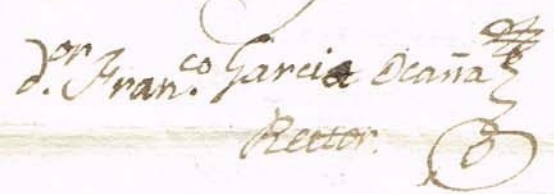 d.ⁿ Fran.ᶜᵒ Garcia Ocaña
Rector.